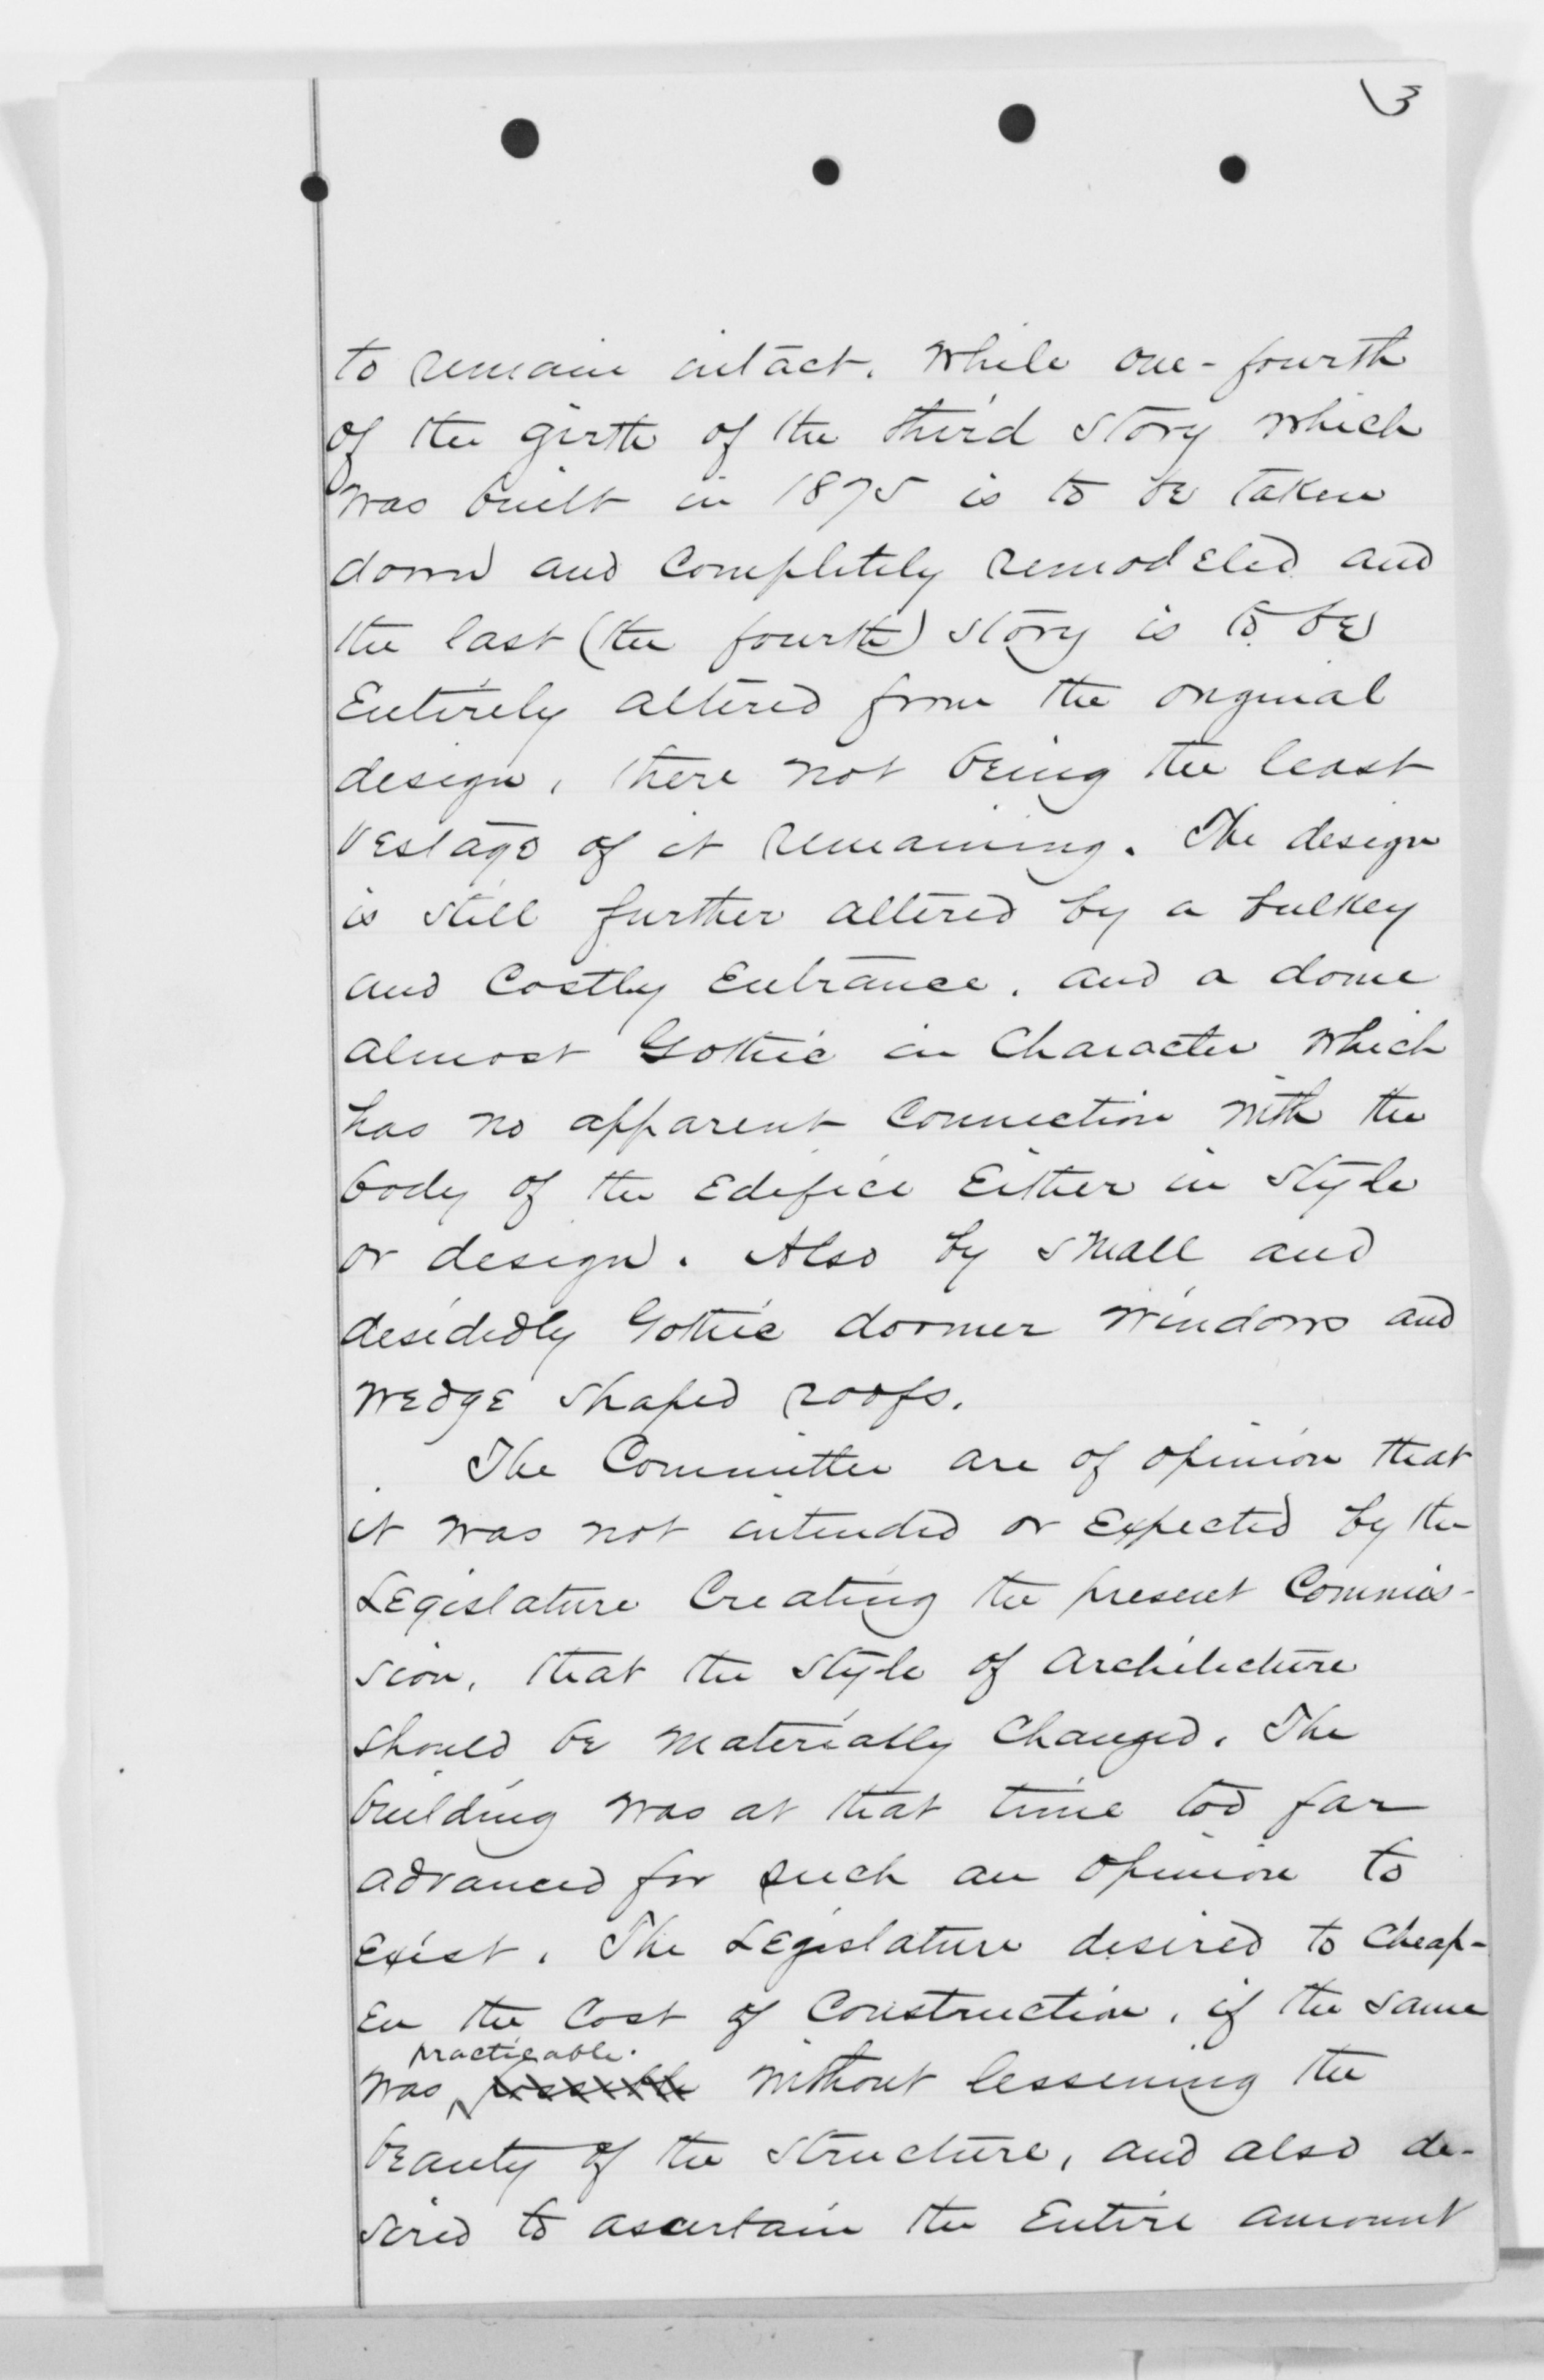 3
to remain intact. While one-fourth
of the girth of the third story which
was built in 1875 is to be taken
down and completely remodeled and
the last (the fourth) story is to be
Entirely altered from the original
design, there not being the least
vestage of it remaining. The design
is still further altered by a bulkey
and Costly Entrance, and a dome
almost Gothic in Character which
has no apparent Connection with the
body of the Edifice Either in style
or design. Also by small and
desidedly Gothic dormer windows and
wedge shaped roofs.
The Committee are of opinion that
it was not intended or Expected by the
Legislature Creating the present Commis-
sion, that the style of Architecture
should be materially Changed. The
building was at that time too far
advanced for such an opinion to
Exist. The Legislature desired to Cheap-
en the Cost of Construction, if the same
practicable.
was possible without lessening the
beauty of the structure, and also de-
sired to ascertain the Entire amount